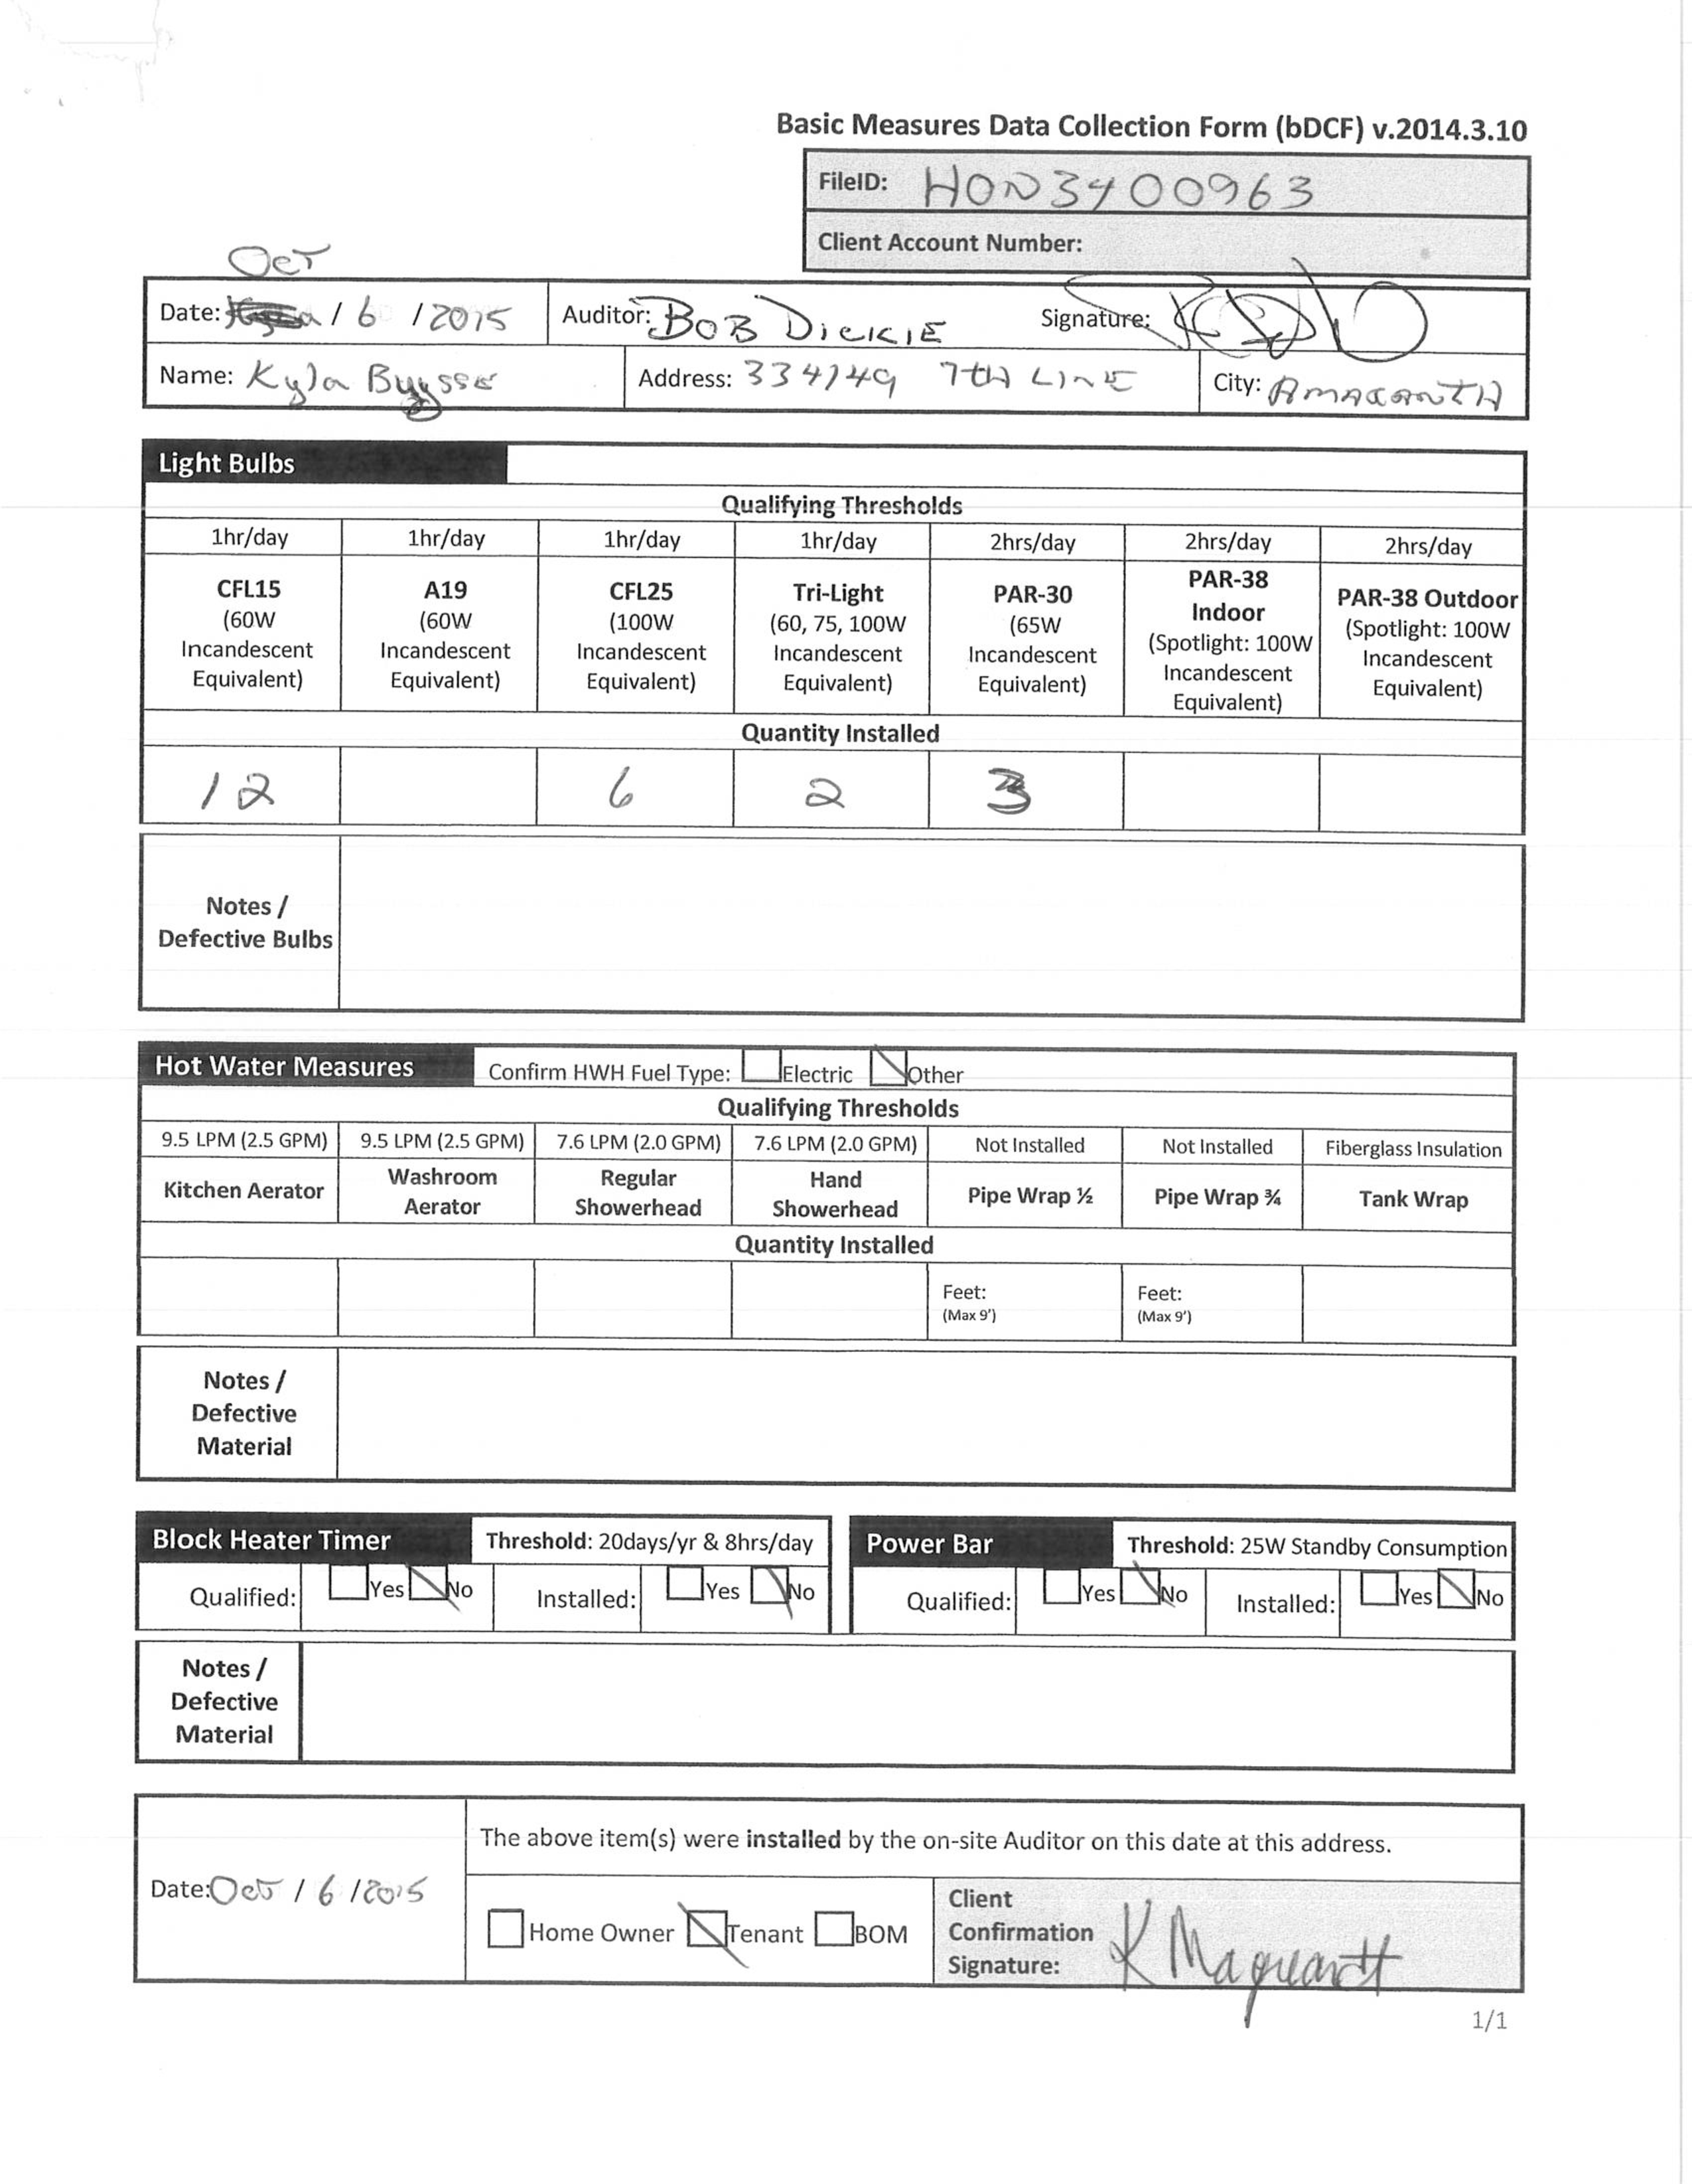 Basic Measures Data Collection Form (bDCF) v.2014.3.10
FileID: HON3400963
Client Account Number:
Oct
Date: / 6 / 2015 Auditor: BOB DICKIE Signature:
Name: Kyla Buysse Address: 334149 7TH LINE City: AMARANTH
Light Bulbs
Qualifying Thresholds
1hr/day 1hr/day 1hr/day 1hr/day 2hrs/day 2hrs/day 2hrs/day
CFL15 (60W Incandescent Equivalent) A19 (60W Incandescent Equivalent) CFL25 (100W Incandescent Equivalent) Tri-Light (60, 75, 100W Incandescent Equivalent) PAR-30 (65W Incandescent Equivalent) PAR-38 Indoor (Spotlight: 100W Incandescent Equivalent) PAR-38 Outdoor (Spotlight: 100W Incandescent Equivalent)
Quantity Installed
12 6 2 3
Notes /
Defective Bulbs
Hot Water Measures Confirm HWH Fuel Type: Electric Other
Qualifying Thresholds
9.5 LPM (2.5 GPM) 9.5 LPM (2.5 GPM) 7.6 LPM (2.0 GPM) 7.6 LPM (2.0 GPM) Not Installed Not Installed Fiberglass Insulation
Kitchen Aerator Washroom Aerator Regular Showerhead Hand Showerhead Pipe Wrap ½ Pipe Wrap ¾ Tank Wrap
Quantity Installed
Feet: Feet:
(Max 9') (Max 9')
Notes /
Defective
Material
Block Heater Timer Threshold: 20days/yr & 8hrs/day Power Bar Threshold: 25W Standby Consumption
Qualified: Yes No Installed: Yes No Qualified: Yes No Installed: Yes No
Notes /
Defective
Material
The above item(s) were installed by the on-site Auditor on this date at this address.
Date: Oct / 6 / 2015
Home Owner Tenant BOM
Client
Confirmation
Signature: K Maqueardt
1/1